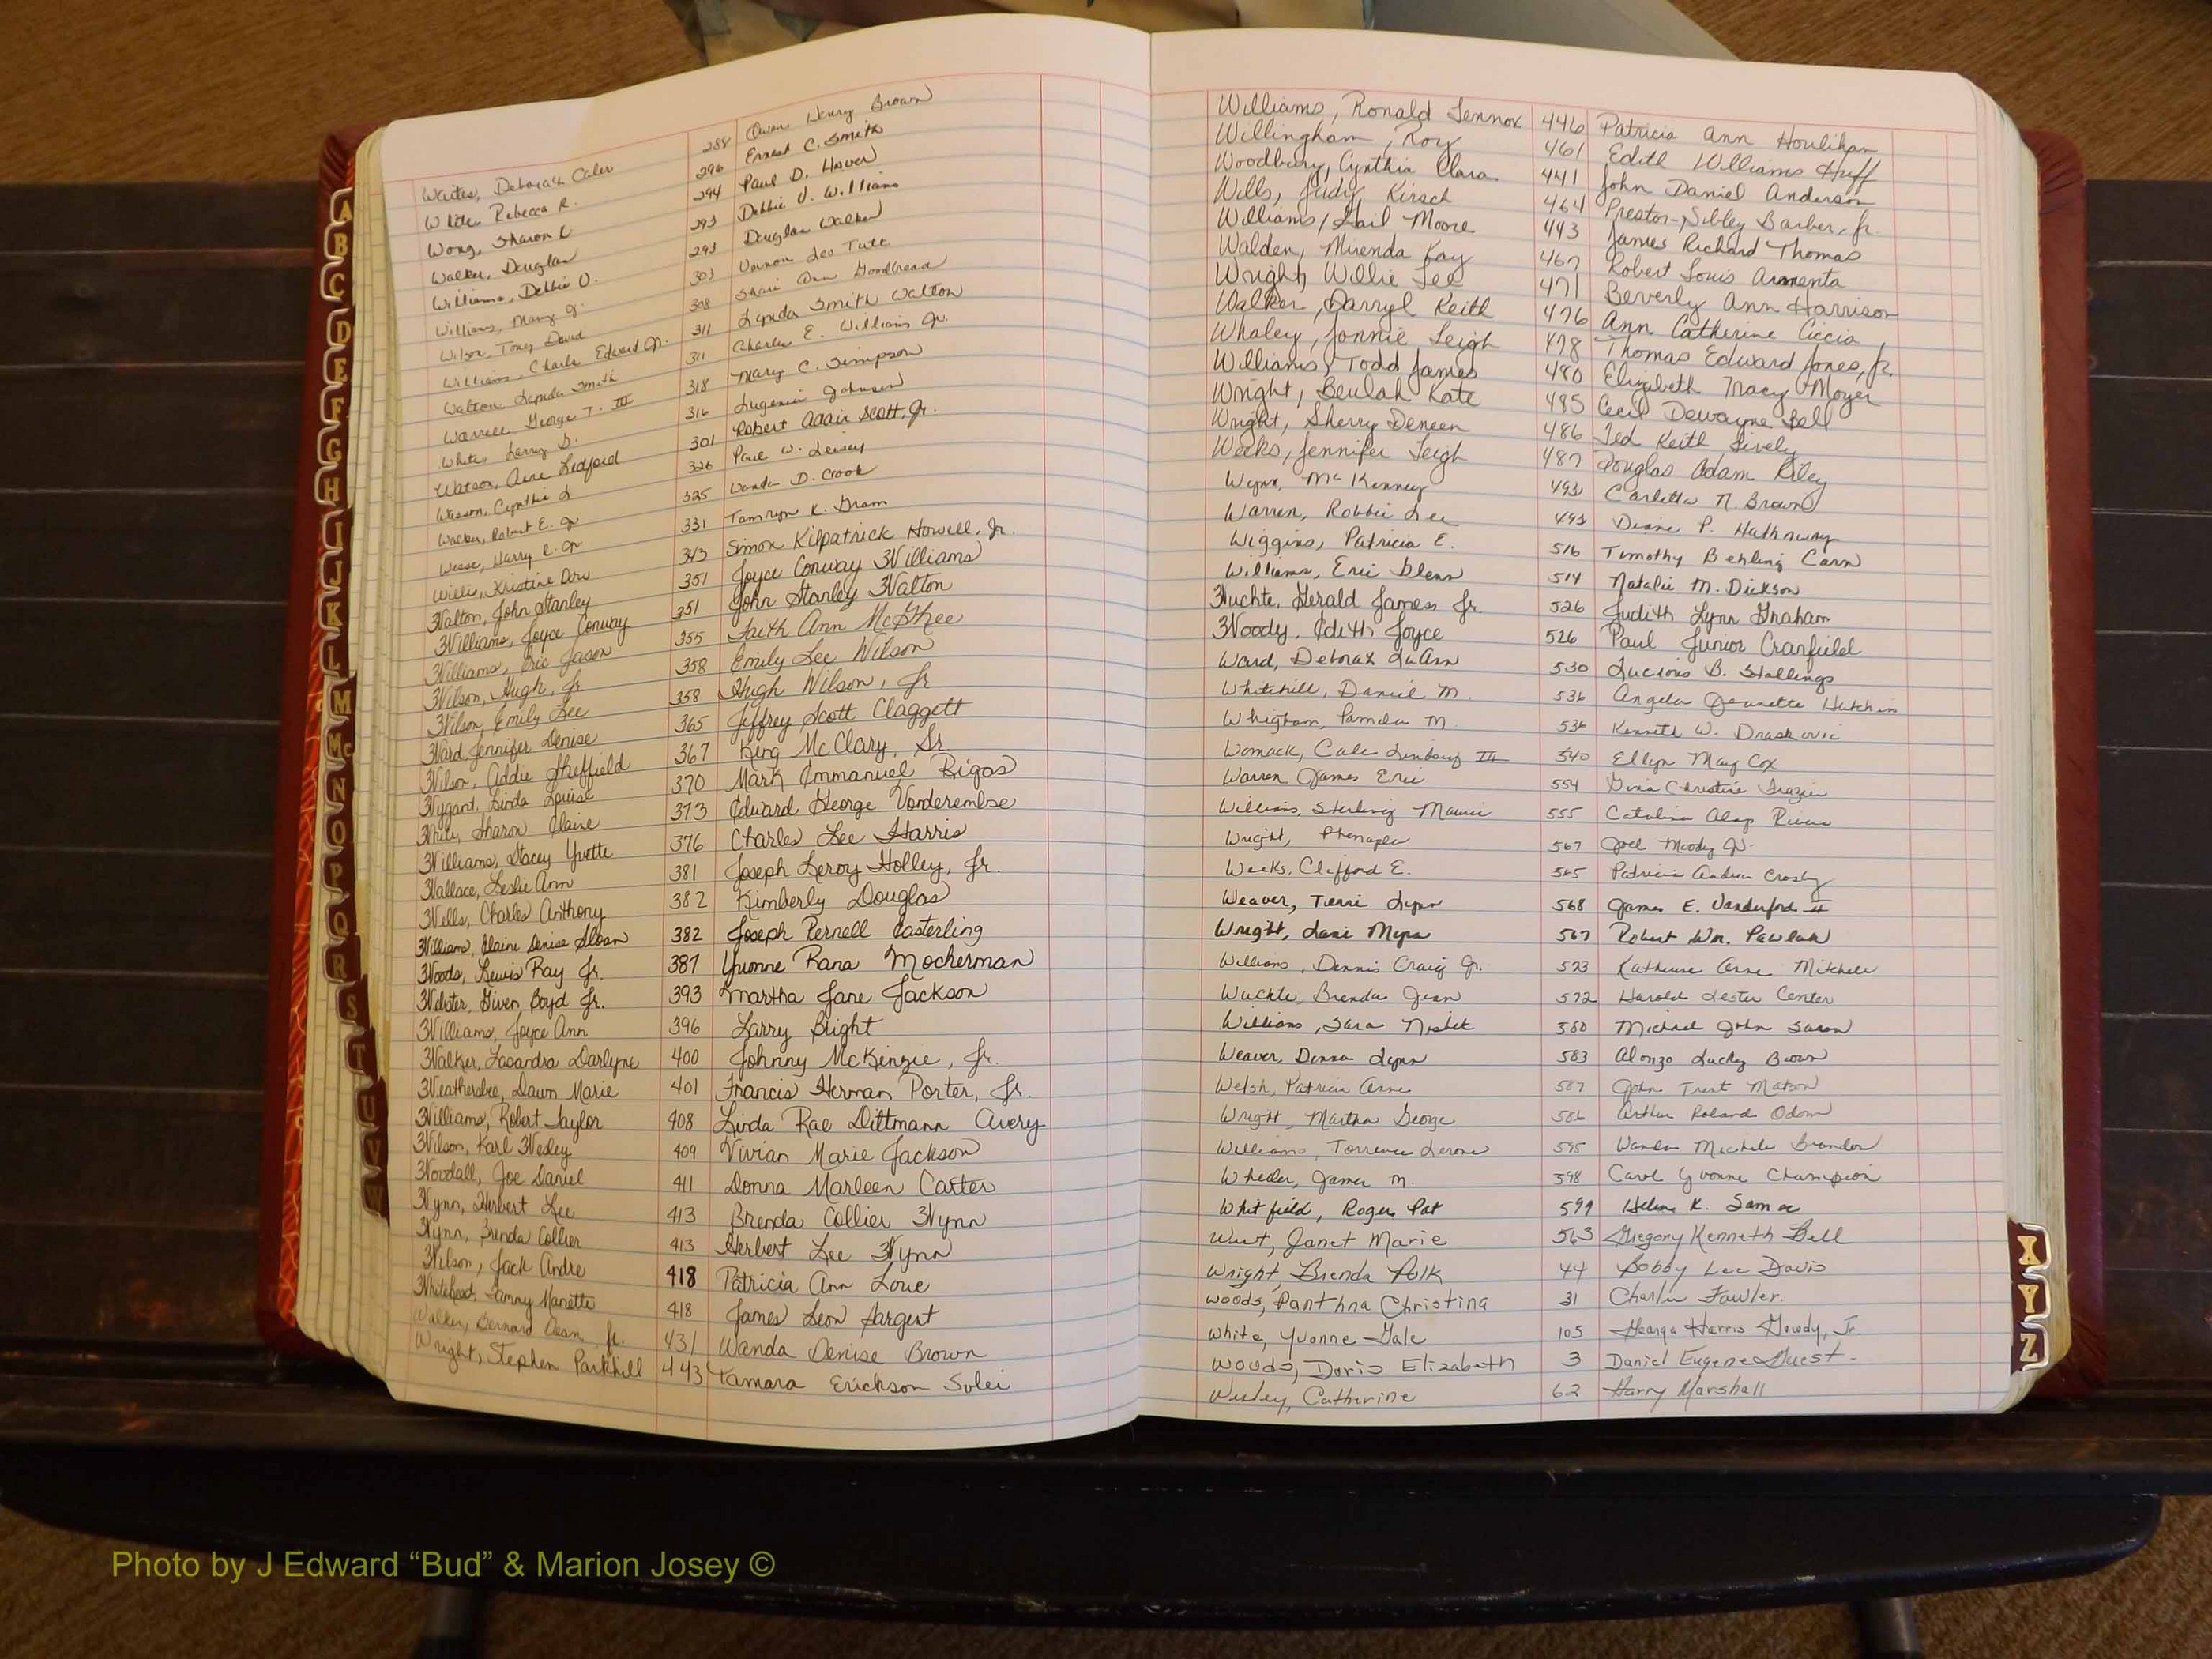 Waites, Deborah Caler 288 Owen Henry Brown
White, Rebecca R. 296 Ernest C. Smith
Wong, Sharon L 294 Paul D. Hover
Walker, Douglas 293 Debbie V. Williams
Williams, Debbie V. 293 Douglas Walker
Williams, Mary J. 303 Vernon Leo Tutt
Wilson, Tony David 308 Shari Ann Goodbread
Williams, Charles Edward Jr. 311 Lynda Smith Walton
Walton, Lynda Smith 311 Charles E. Williams Jr.
Warren George T. III 318 Mary C. Simpson
White, Larry D. 316 Eugenia Johnson
Watson, Anne Ledford 301 Robert Adair Scott, Jr.
Wasson, Cynthia L 326 Paul W.
Walker, Robert E. Jr 325 Wanda D. Crook
Harry C. Jr 331 Tamryn K. Gram
Willis, Kristine 343 Simon Kilpatrick Howell, Jr.
Walton, John Stanley 351 Joyce Conway Williams
Williams, Joyce Conway 351 John Stanley Walton
Williams, Eric Jason 355 Faith Ann McGhee
Wilson, Hugh, Jr 358 Emily Lee Wilson
Wilson, Emily Lee 358 Hugh Wilson, Jr
Ward, Jennifer Denise 365 Jeffrey Scott Claggett
Wilson, Addie Sheffield 367 King McClary, Sr
Wygant, Linda Louise 370 Mark Emmanuel Rigas
Sharon Elaine 373 Edward George Vonderembse
Williams, Stacey Yvette 376 Charles Lee Harris
Wallace, Leslie Ann 381 Joseph Leroy Holley, Jr.
Wells, Charles Anthony 382 Kimberly Douglas
Williams, Elaine Denise Sloan 382 Joseph Pernell Easterling
Woods, Lewis Ray Jr. 387 Yvonne Rana Mocherman
Webster, Given Boyd Jr. 393 Martha Jane Jackson
Williams, Joyce Ann 396 Larry Bright
Walker, Lasandra Darlyne 400 Johnny McKinzie, Jr.
Weathersbee, Dawn Marie 401 Francis Herman Porter, Jr.
Williams, Robert Taylor 408 Linda Rae Dittmann Avery
Wilson, Karl Wesley 409 Vivian Marie Jackson
Woodall, Joe Daniel 411 Donna Marleen Carter
Wynn, Herbert Lee 413 Brenda Collier Wynn
Wynn, Brenda Collier 413 Herbert Lee Wynn
Wilson, Jack Andre 418 Patricia Ann Love
Whitehead, Tammy Manette 418 James Leon Sargent
Walker, Bernard Dean, Jr. 431 Wanda Denise Brown
Wright, Stephen Parkhill 443 Tamara Erickson Solei
Williams, Ronald Lennox 446 Patricia Ann Houlihan
Willingham, Roy 461 Edith Williams Huff
Woodbury, Cynthia Clara 441 John Daniel Anderson
Wills, Judy Kirsch 464 Preston Sibley Barber, Jr.
Williams, Gail Moore 443 James Richard Thomas
Walden, Mirenda Kay 467 Robert Louis Armenta
Wright, Willie Lee 471 Beverly Ann Harrison
Walker, Darryl Keith 476 Ann Catherine Ciccia
Whaley, Jonnie Leigh 478 Thomas Edward Jones, Jr.
Williams, Todd James 480 Elizabeth Tracy Moyer
Wright, Beulah Kate 485 Cecil Dewayne Bell
Wright, Sherry Deneen 486 Ted Keith Lively
Weeks, Jennifer Leigh 487 Douglas Adam Riley
Wynn, McKenney 493 Carletta N. Brown
Warren, Robbie Lee 493 Diane P. Hathaway
Wiggins, Patricia E. 516 Timothy Behling Carn
Williams, Eric Glenn 514 Natalie M. Dickson
Wuchte, Gerald James Jr. 526 Judith Lynn Graham
Woody, Edith Joyce 526 Paul Junior Cranfield
Ward, Deborah LuAnn 530 Lucious B. Stallings
Whitehill, Daniel M. 536 Angela Jeanette Hutchins
Whigham, Pamela M. 536 Kenneth W. Draskovic
Womack, Cale Lindsey III 540 Ellyn May Cox
Warren James Eric 554 Gina Christine Frazier
Williams, Sterling Maurice 555 Catalina Alap Rivera
Wright, 567 Joel Moody Jr.
Weeks, Clifford E. 565 Patricia Andrea Crosby
Weaver, Terri Lynn 568 James E. Vanderford II
Wright, Lani Myra 567 Robert Wm. Pawlak
Williams, Dennis Craig Jr. 573 Katherine Anne Mitchell
Wuchte, Brenda Jean 572 Harold Lester Center
Williams, Sara Nisbet 580 Michael John Saron
Weaver, Donna Lynn 583 Alonzo Lucky Brown
Welsh, Patricia Anne 587 John Trent Matson
Wright, Martha George 586 Arthur Roland Odom
Williams, Torrence Lerone 595 Wanda Michele Brandon
Wheeler, James M. 598 Carol Yvonne Champion
Whitfield, Roger Pat 599 Helene K.
West, Janet Marie 563 Gregory Kenneth Bell
Wright, Brenda Polk 44 Bobby Lee Davis
Woods, Panthna Christina 31 Charlie Fowler.
White, Yvonne Gale 105 George Harris Gowdy, Jr.
Woods, Doris Elizabeth 3 Daniel Eugene Guest
Wesley, Catherine 62 Harry Marshall
A
B
C
D
E
F
G
H
I
J
K
L
M
Mc
N
O
P
Q
R
S
T
U
V
W
X
Y
Z
Photo by J Edward “Bud” & Marion Josey ©